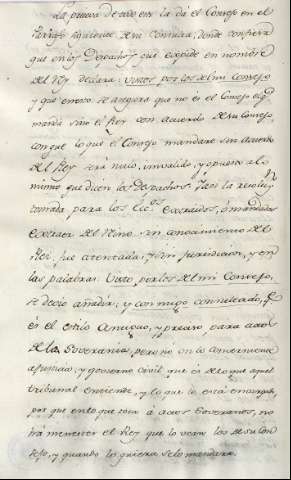 La prueva de todo esto la dá el Consejo en el
Parrafo siguiente de su Consulta, donde confiesa
que en los Despachos que expide en nombre
del Rey declara: vistos por los del mi Consejo
y que en esto se asegura que no és el Consejo el q.e
manda sino el Rey con acuerdo de su Consejo,
conque lo que el Consejo mandare sin acuerdo
del Rey será nulo, invalido, y opuesto a lo
mismo que dicen los despachos. Y assi la resolu.on
tomada para los Ecc.cos extraidos, ó mandados
extraer del Reino sin conocimiento del
Rei fue atentada, y sin jurisdicion, y en
las palabras: Visto por los del mi Consejo,
se devio añadir, y conmigo consultado, q.e
és el estilo Antiguo, y preciso para actos
de la Soverania, pero no en lo concerniente
a justicia, y govierno Civil que és de lo que aquel
tribunal entiende, y lo que le está encargado,
por que en lo que toca á actos Soveranos, no
há menester el Rey que lo vean los de su Con
sejo, y quando lo quiera se lo mandara.